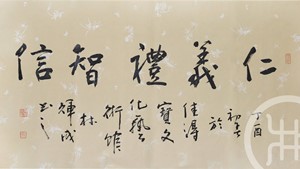 仁義禮智信
丁酉
初
於
佳
寶文
化藝
術館
林
輝成
书之